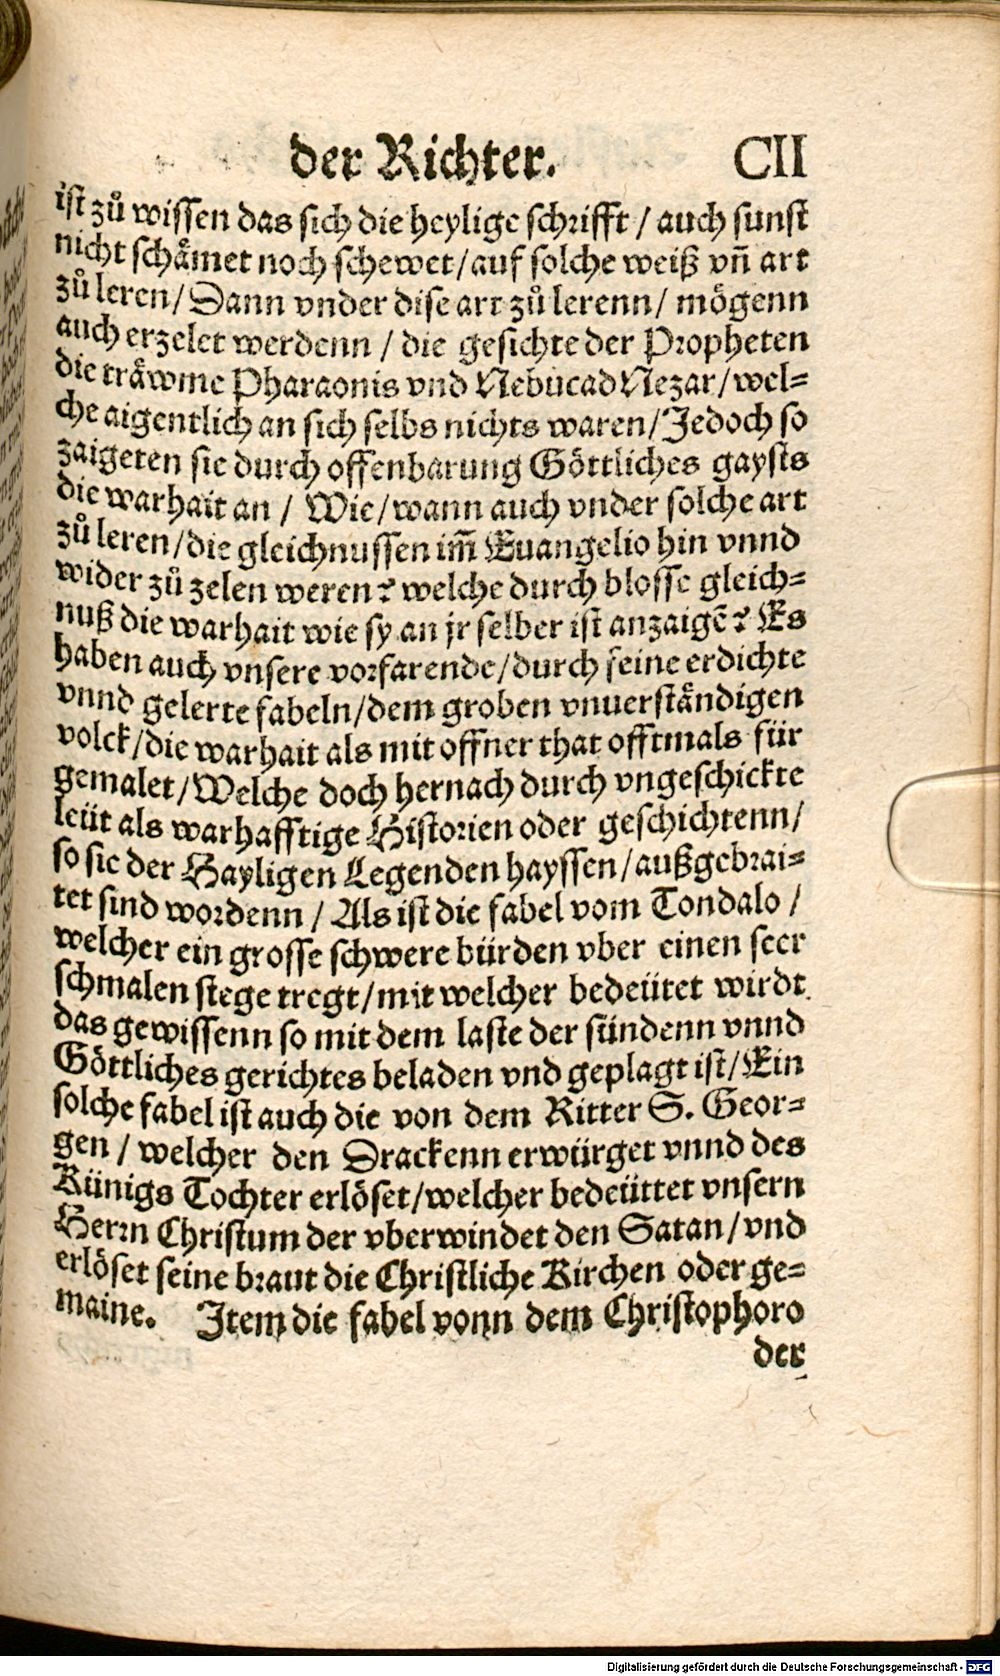 der Richter. CII
ist zů wissen das sich die heylige schrifft / auch sunst
nicht schåmet noch schewet/auf solche weiß vñ art
zů leren/Dann vnder dise art zů lerenn/ mögenn
auch erzelet werdenn / die gesichte der Propheten
die tråwme Pharaonis vnd NebucadNezar/wel=
che aigentlich an sich selbs nichts waren/Jedoch so
zaigeten sie durch offenbarung Göttliches gaysts
die warhait an / Wie/wann auch vnder solche art
zů leren/die gleichnussen im̃ Euangelio hin vnnd
wider zů zelen weren? welche durch blosse gleich=
nuß die warhait wie sy an jr selber ist anzaigẽ? Es
haben auch vnsere vorfarende/durch seine erdichte
vnnd gelerte fabeln/dem groben vnuerståndigen
volck/die warhait als mit offner that offtmals für
gemalet/Welche doch hernach durch vngeschickte
leüt als warhafftige Historien oder geschichtenn/
so sie der Hayligen Legenden hayssen/außgebrai=
tet sind wordenn / Als ist die fabel vom Tondalo /
welcher ein grosse schwere bürden vber einen seer
schmalen stege tregt/mit welcher bedeütet wirdt
das gewissenn so mit dem laste der sündenn vnnd
Göttliches gerichtes beladen vnd geplagt ist/Ein
solche fabel ist auch die von dem Ritter S. Geor=
gen / welcher den Drackenn erwürget vnnd des
Künigs Tochter erlöset/welcher bedeüttet vnsern
Herrn Christum der vberwindet den Satan/vnd
erlöset seine braut die Christliche Kirchen oder ge=
maine. Jtem die fabel vonn dem Christophoro
der
Digitalisierung gefördert durch die Deutsche Forschungsgemeinschaft - DFG